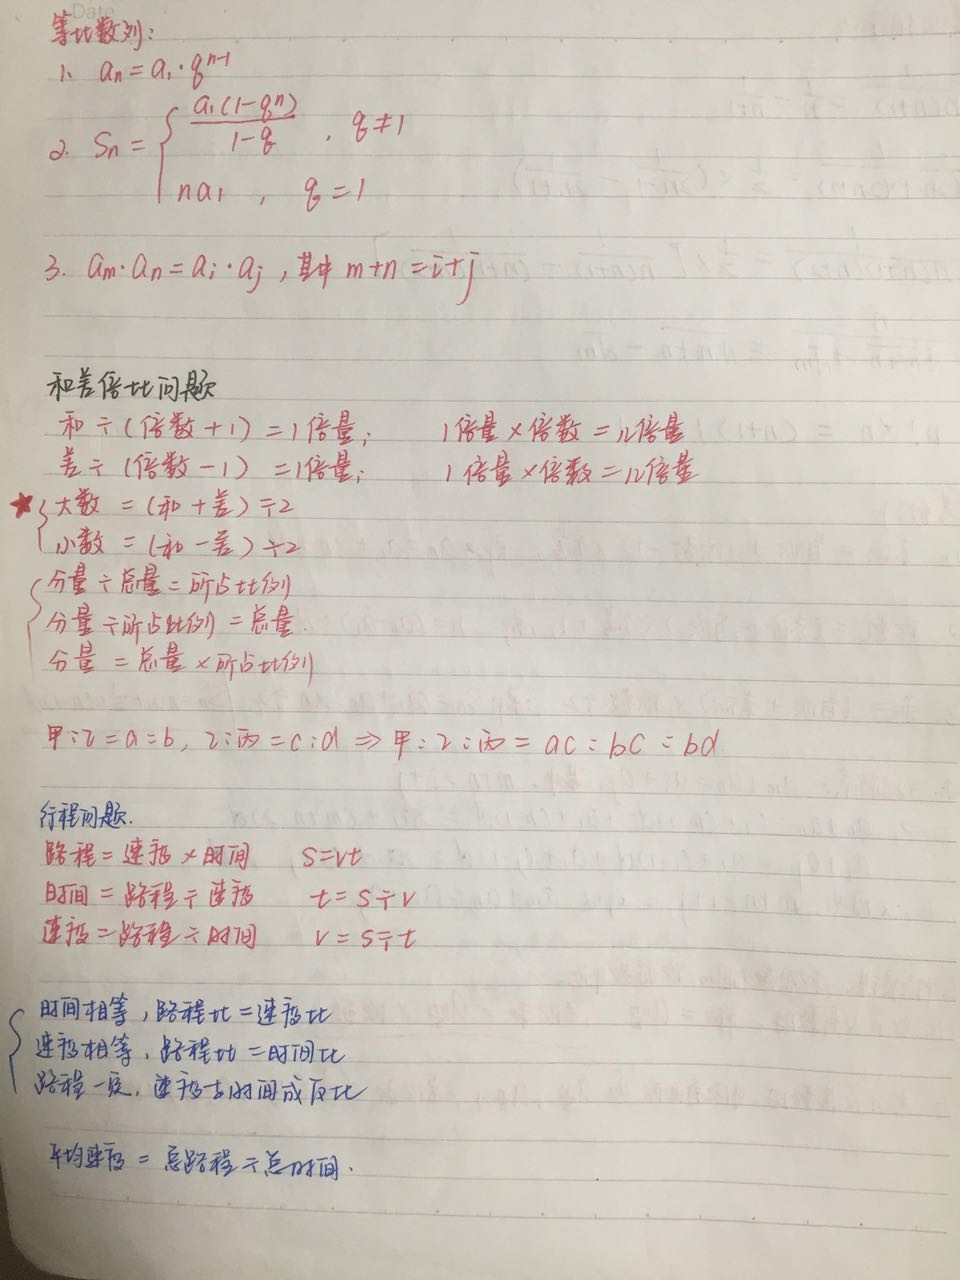 Date
等比数列:
1. aₙ = a₁·qⁿ⁻¹
2. Sₙ = { a₁(1-qⁿ) / 1-q , q≠1
na₁ , q=1
3. aₘ·aₙ = aᵢ·aⱼ ,其中 m+n=i+j
和差倍比问题
和÷(倍数+1)=1倍量; 1倍量×倍数=n倍量
差÷(倍数-1)=1倍量; 1倍量×倍数=n倍量
★ 大数 =(和+差)÷2
小数 =(和-差)÷2
分量÷总量=所占比例
分量÷所占比例=总量
分量=总量×所占比例
甲:乙=a:b, 乙:丙=c:d ⇒ 甲:乙:丙=ac:bc:bd
行程问题.
路程=速度×时间 s=vt
时间=路程÷速度 t=s÷v
速度=路程÷时间 v=s÷t
时间相等,路程比=速度比
速度相等,路程比=时间比
路程一定,速度与时间成反比
平均速度=总路程÷总时间.